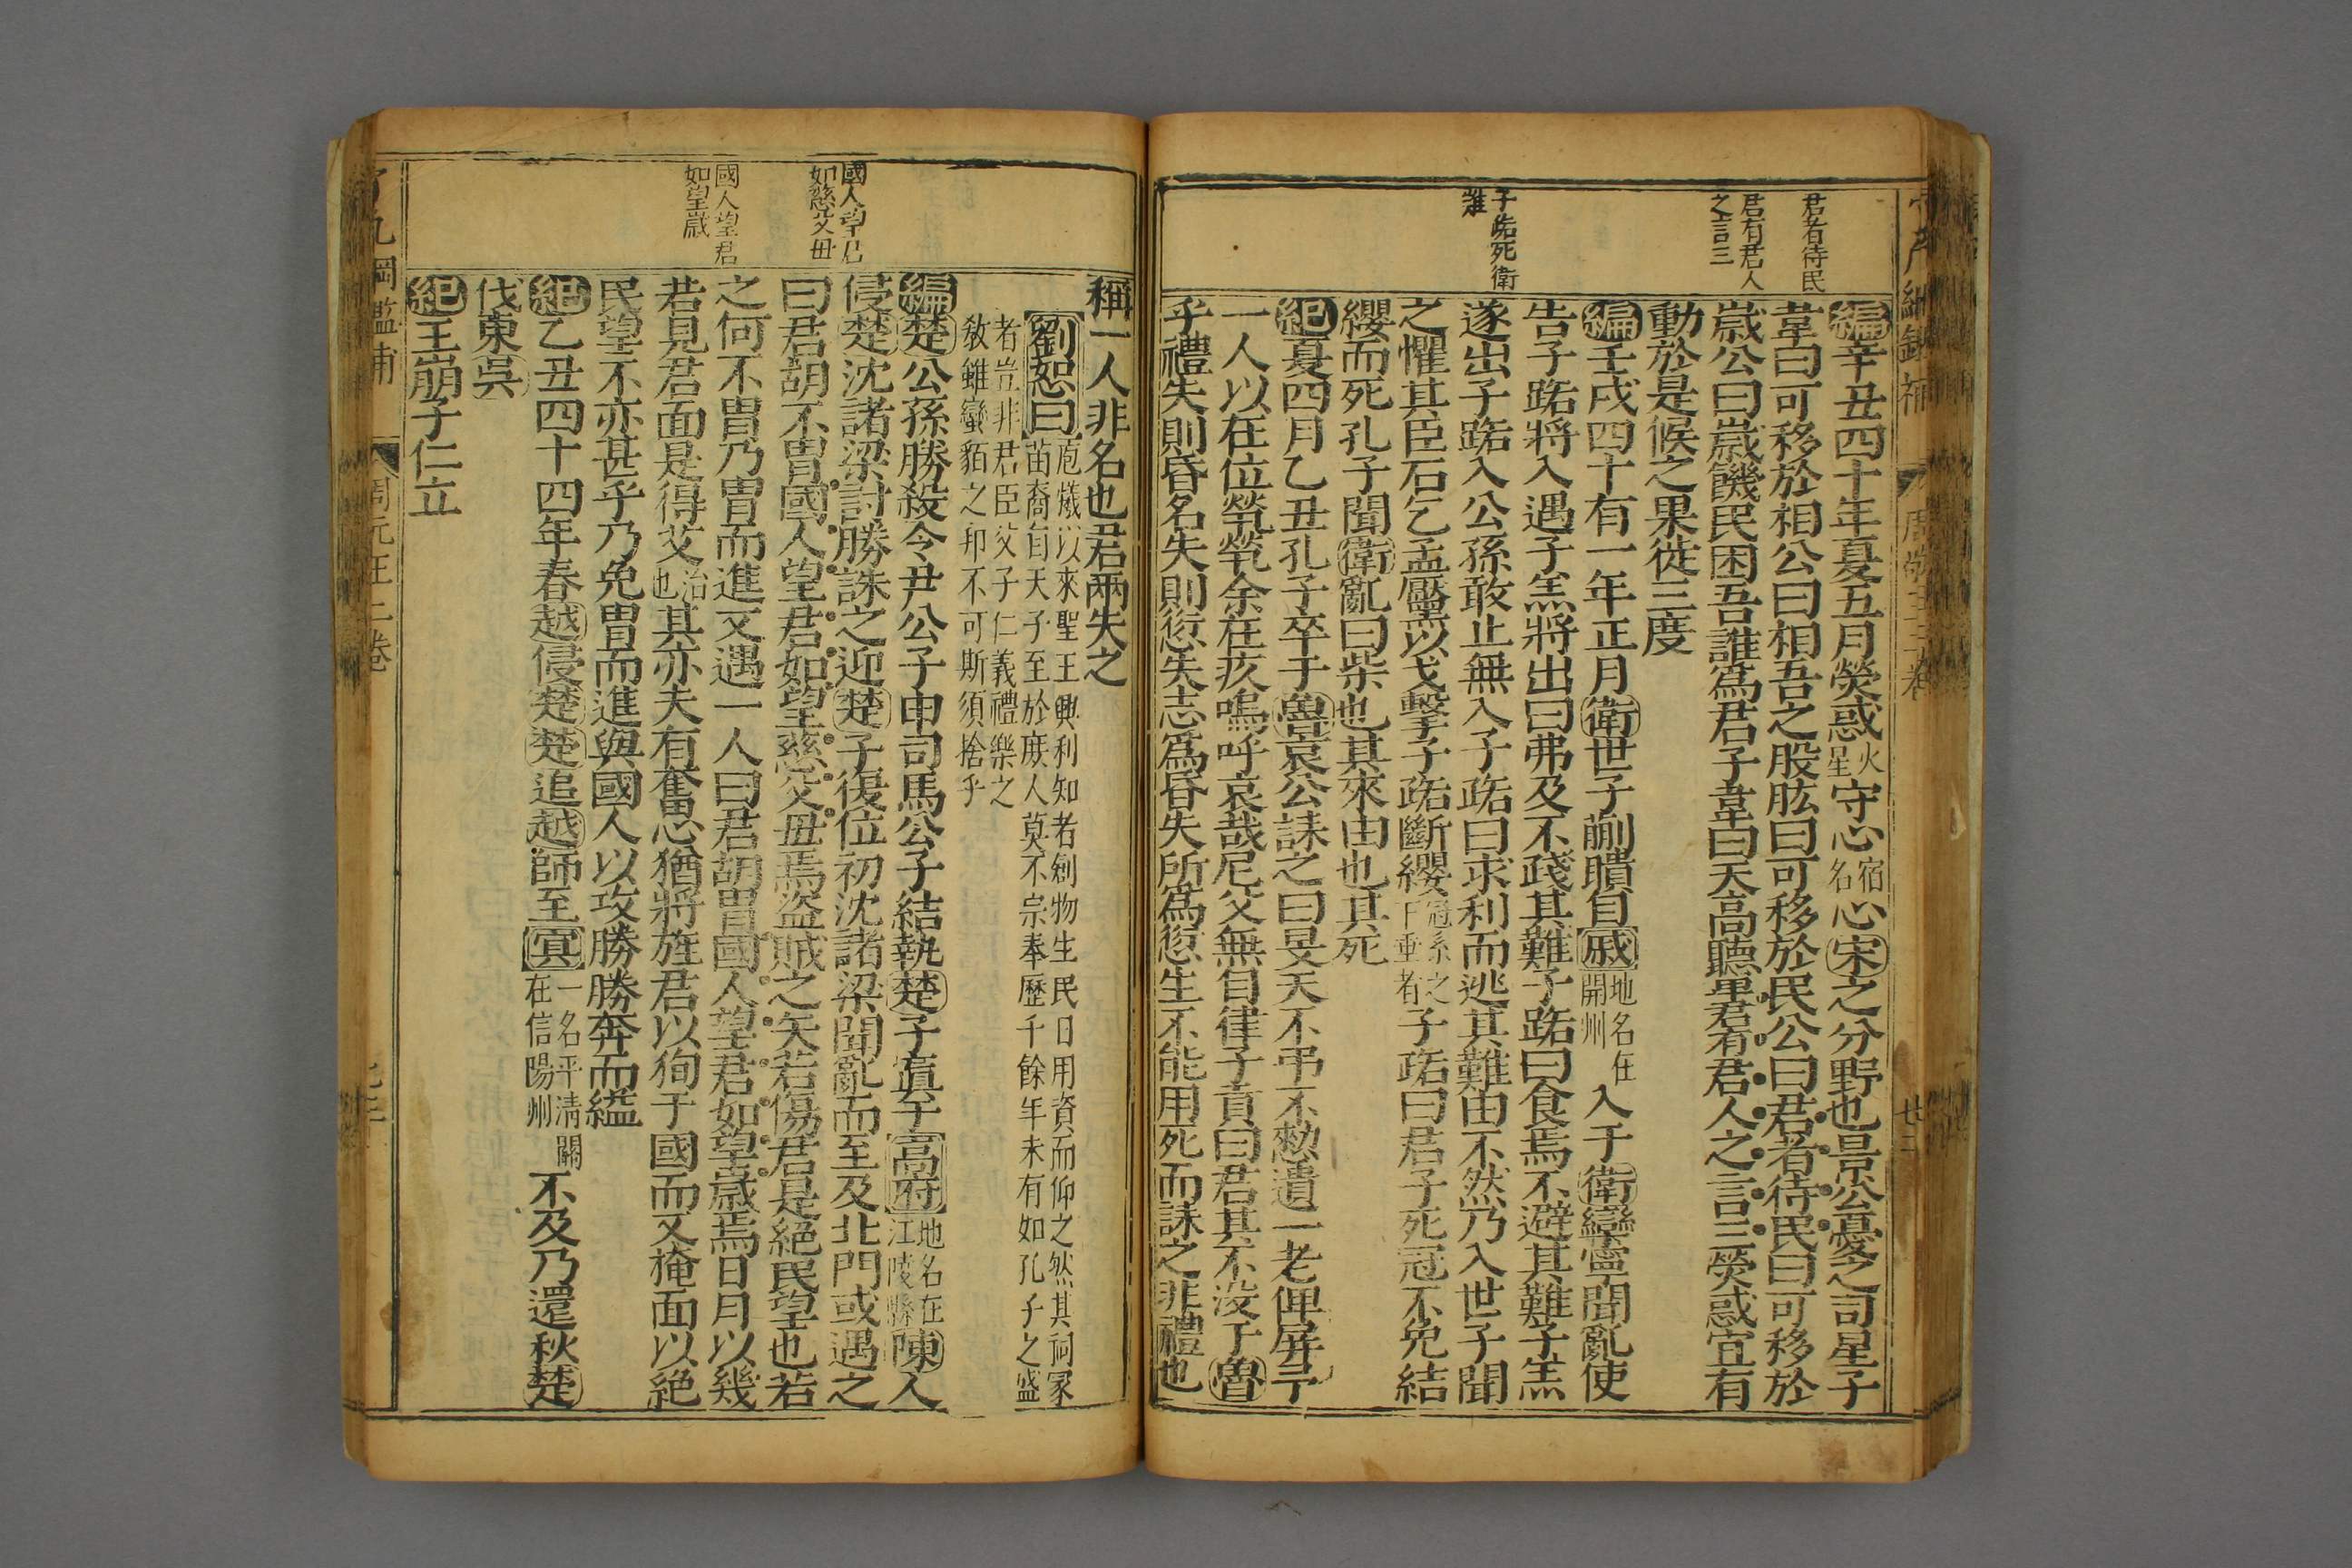 君者待民
君有君人
之言三
子路死衛
難
編辛丑四十年夏五月熒惑火星守心宿名心宋之分野也景公憂之司星子
韋曰可移於相公曰相吾之股肱曰可移於民公曰君者待民曰可移於
歲公曰歲饑民困吾誰爲君子韋曰天高聽卑君有君人之言三熒惑宜有
動於是候之果徙三度
編壬戌四十有一年正月衛世子蒯聵自戚地名在開州入于衛孌寧聞亂使
告子路將入遇子羔將出曰弗及不踐其難子路曰食焉不避其難子羔
遂出子路入公孫敢止無入子路曰求利而逃其難由不然乃入世子聞
之懼其臣石乞孟黶以戈擊子路斷纓冠系之下垂者子路曰君子死冠不免結
纓而死孔子聞衛亂曰柴也其來由也其死
紀夏四月乙丑孔子卒于魯哀公誄之曰旻天不弔不憖遺一老俾屏予
一人以在位煢煢余在疚嗚呼哀哉尼父無自律子貢曰君其不没于魯
乎禮失則昏名失則愆失志爲昏失所爲愆生不能用死而誄之非禮也
國人望君
如慈父母
國人望君
如望歲
稱一人非名也君兩失之
劉恕曰庖犧以來聖王興利知者創物生民日用資而仰之然其祠冢
苗裔自天子至於庶人莫不宗奉歷千餘年未有如孔子之盛
者豈非君臣父子仁義禮樂之
教雖蠻貊之邦不可斯須捨乎
編楚公孫勝殺令尹公子申司馬公子結執楚子寘于高府地名在江陵縣陳人
侵楚沈諸梁討勝誅之迎楚子復位初沈諸梁聞亂而至及北門或遇之
曰君胡不冑國人望君如望慈父母焉盜賊之矢若傷君是絕民望也若
之何不冑乃冑而進又遇一人曰君胡冑國人望君如望歲焉日月以幾
若見君面是得艾治也其亦夫有奮心猶將旌君以徇于國而又掩面以絕
民望不亦甚乎乃免冑而進與國人以攻勝勝奔而縊
紀乙丑四十四年春越侵楚楚追越師至冥一名平清關在信陽州不及乃還秋楚
伐東吳
紀王崩子仁立
綱鑑補 周元王二卷